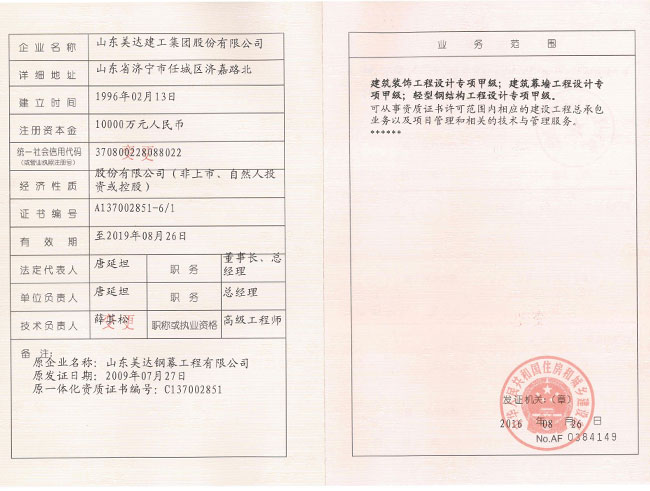 企业名称 山东美达建工集团股份有限公司
详细地址 山东省济宁市任城区济嘉路北
建立时间 1996年02月13日
注册资本金 10000万元人民币
统一社会信用代码
(或营业执照注册号) 370800228088022 变更
经济性质 股份有限公司(非上市、自然人投
资或控股)
证书编号 A137002851-6/1
有效期 至2019年08月26日
法定代表人 唐延坦 职务 董事长、总
经理
单位负责人 唐延坦 职务 总经理
技术负责人 薛其松 变更 职称或执业资格 高级工程师
备注:
原企业名称: 山东美达钢幕工程有限公司
原发证日期: 2009年07月27日
原一体化资质证书编号: C137002851
业务范围
建筑装饰工程设计专项甲级; 建筑幕墙工程设计专
项甲级; 轻型钢结构工程设计专项甲级。
可从事资质证书许可范围内相应的建设工程总承包
业务以及项目管理和相关的技术与管理服务。
******
中华人民共和国住房和城乡建设部
发证机关: (章)
2016年08月26日
No.AF 0384149